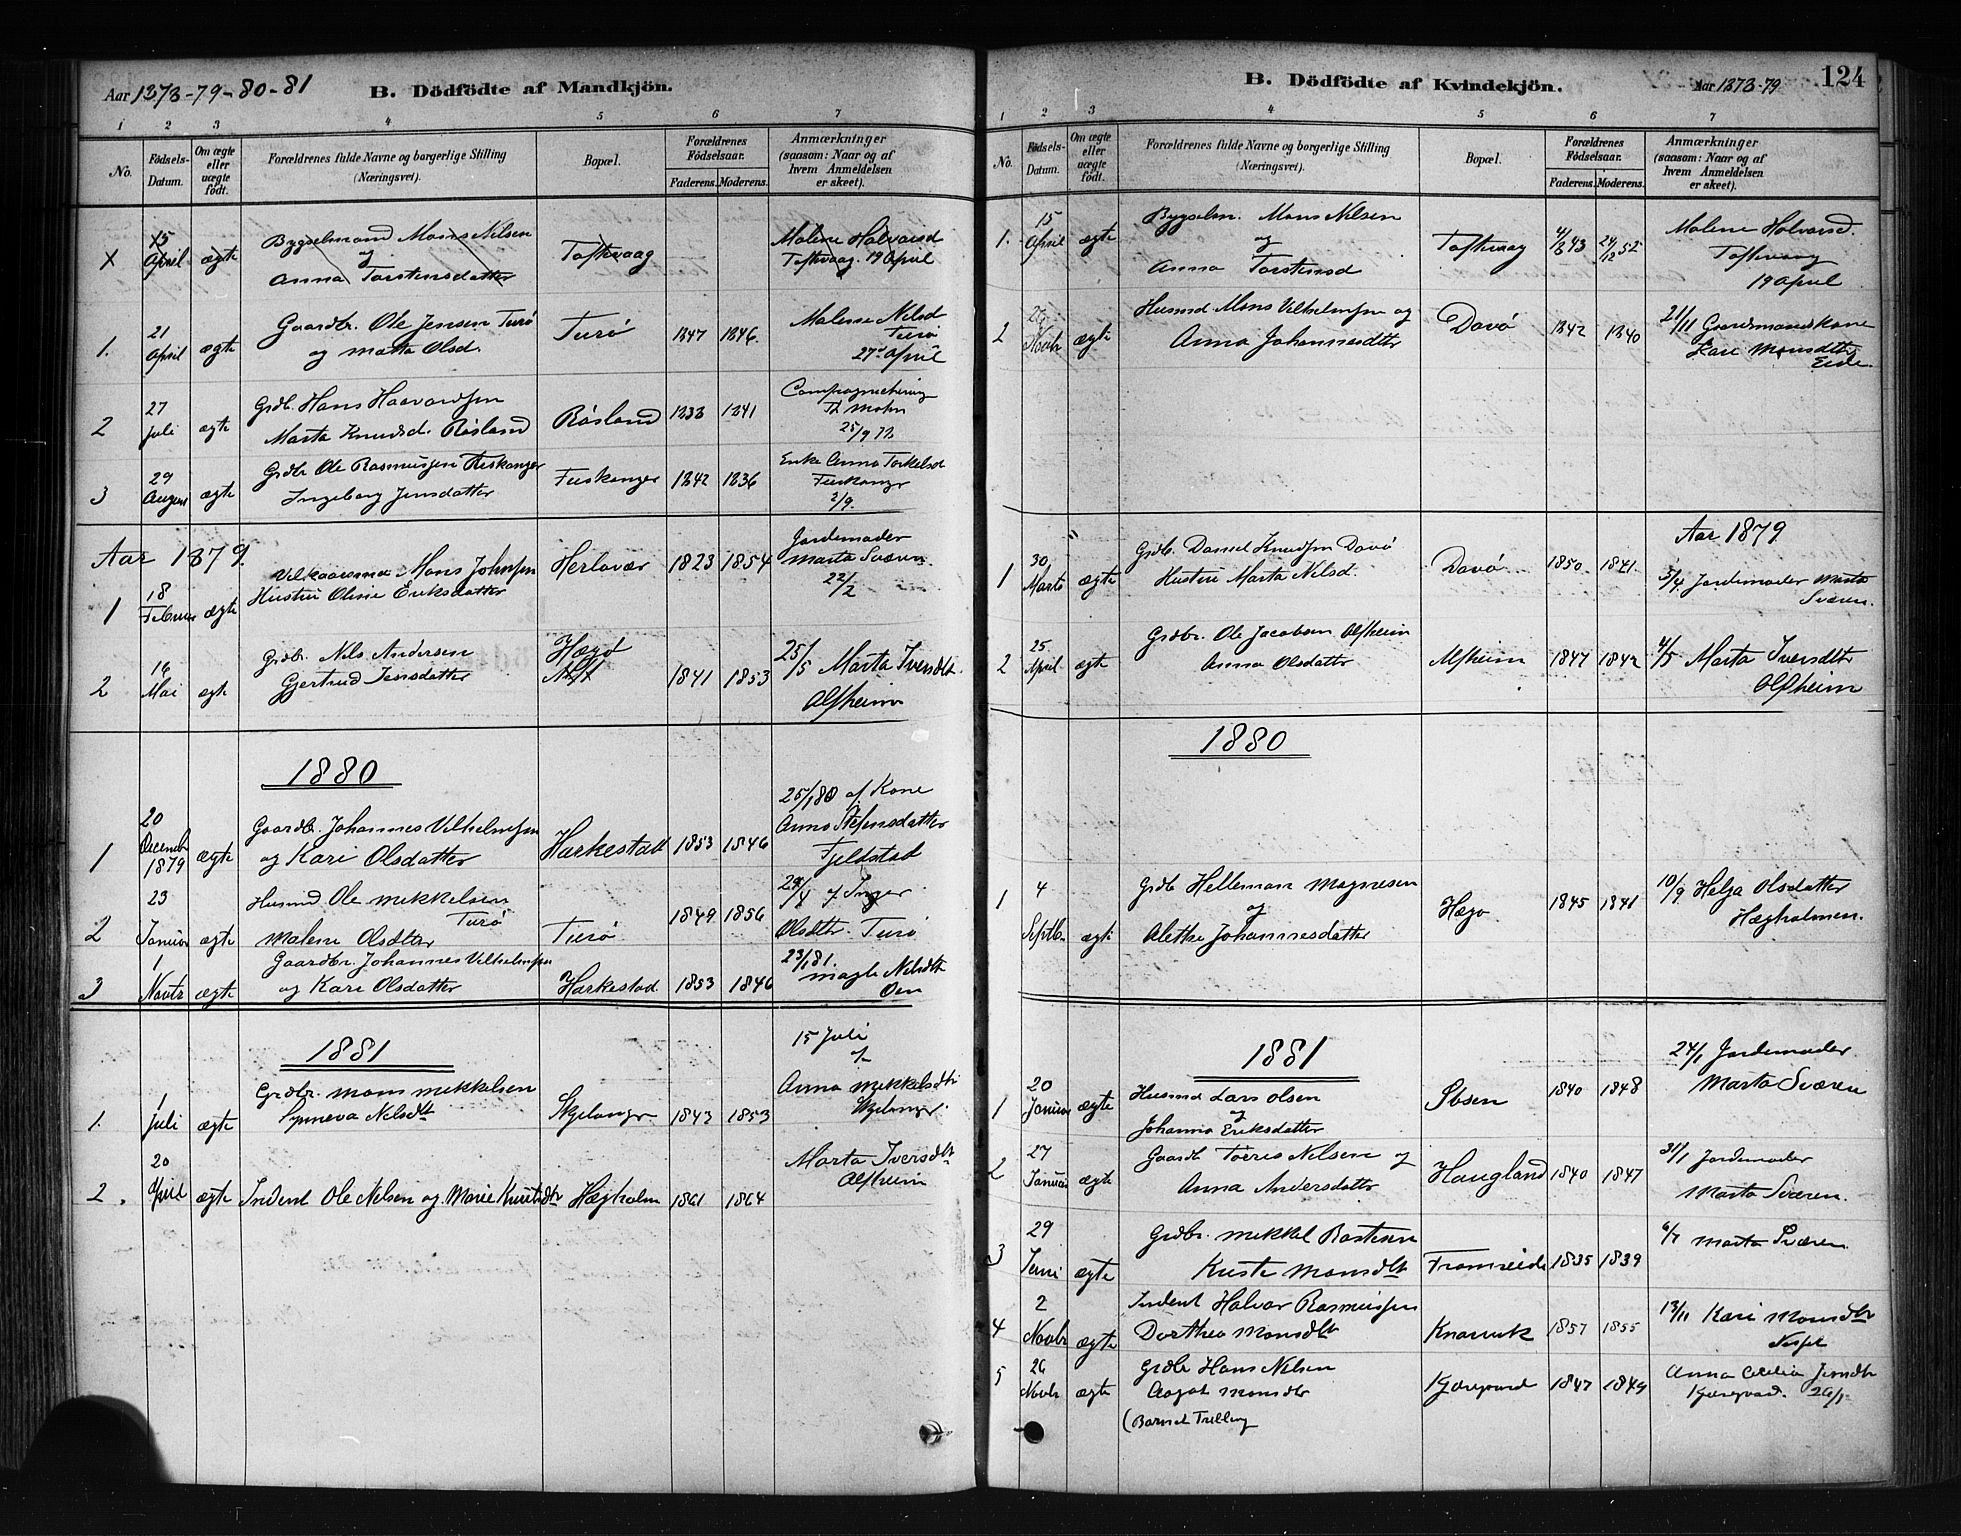 Aar 1878-79-80-81
B. Dödfödte af Mandkjön.
1 2 3 4 5 6 7
No.
Födsels-Datum.
Om ægte eller uægte födt.
Forældrenes fulde Navne og borgerlige Stilling (Næringsvei).
Bopæl.
Forældrenes Födselsaar.
Faderens. Moderens.
Anmærkninger (saasom: Naar og af hvem Anmeldelsen er skeet).
X 15 April ægte Bygselmand Mons Nilsen og Anna Torstensdatter Toftevaag Malene Halvarsd Toftevaag 19 April
1. 21 April ægte Gaardbr. Ole Jensen Turö og Marta Olsd. Turö 1847 1846. Malene Nilsd Turö 27d April
2 27 Juli ægte Grdb. Hans Haavardsen Marta Knudsd. Rösland Rösland 1838 1841 Th Mohn 25/9 78
3 29 August ægte Grdb Ole Rasmussen Feskanger Ingeborg Jensdatter Feskanger 1842 1836 Enke Anna Torkelsd Feskanger 2/9.
Aar 1879.
1 18 Februar ægte Vilkaarsmn Mons Johnsen Hustru Oline Eriksdatter Herlövær 1823 1854 Jordemoder Marta Sværen 22/2
2 16 Mai egt Grdb. Nils Andersen Gjertrud Jensdatter Hægö 1841 1853 25/5 Marta Iversdtr Alfheim
1880
1 20 December 1879 ægte Gaardbr. Johannes Vilhelmsen og Kari Olsdatter Harkestad 1853 1846 25/1 80 af Kone Anna Stefensdatter Fjeldstad
2 23 Januar ægte Husmd Ole Mikkelsen Turö Malene Olsdtter Turö 1849 1856 af Inger Olsdtr. Turö
3 1 Novbr ægte Gaardbr. Johannes Vilhelmsen og Kari Olsdatter Harkestad. 1853 1846 23/1 81. Magle Nilsdtr Oen
1881
1. 1 Juli ægte Grdbr. Mons Mikkelsen Synneva Nilsdt Skjelanger 1843 1853 15 Juli af Anna Mikkelsdtr Skjelanger.
2. 20 April ægte Inderst Ole Nilsen og Marie Knutsdtr Hægholm 1861 1864 Marta Iversdtr Alfheim
B. Dödfödte af Kvindekjön.
Aar 1878-79
124
1 2 3 4 5 6 7
No.
Födsels-Datum.
Om ægte eller uægte födt.
Forældrenes fulde Navne og borgerlige Stilling (Næringsvei).
Bopæl.
Forældrenes Födselsaar.
Faderens. Moderens.
Anmærkninger (saasom: Naar og af hvem Anmeldelsen er skeet).
1. 15 April ægte Bygselm. Mons Nilsen og Anna Torstensd Toftevaag 4/8 43 24/12 52 Malene Halvarsd. Toftevaag 19 April
2 Novbr ægte Husmd Mons Vilhelmsen og Anna Johannesdtter Davö 1842 1840 21/11 Gaardmandskone Kari Monsdtter Eide.
Aar 1879
1 30 Marts ægte Grdb. Daniel Knudsen Davö Hustru Marta Nilsd. Davö 1850. 1841. 5/4. Jordemoder Marta Sværen.
2 25 April ægte Grdbr. Ole Jacobsen Alfheim Anna Olsdatter Alfheim 1847 1842 4/5 Marta Iversdtr Alfheim
1880
1 4 Septbr. ægte Grdb Helleman Magnesen og Alethe Johannesdatter Hægö 1845 1841 10/9 Helga Olsdatter Hægholmen.
1881
1 20 Januar ægte Husmd Lars Olsen og Johanna Eriksdatter Sösen 1840 1848 24/1 Jordemoder Marta Sværen
2 27 Januar ægte Gaardb Torris Nilsen og Anna Andersdatter Haugland 1840 1847 31/1 Jordemoder Marta Sværen.
3 29 Juni ægte Grdbr. Mikkel Bastesen Kirste Monsdtr Fromreide 1835 1839 6/7 Marta Sværen.
4 2 Novbr ægte Inderst Halvor Rasmussen Dorthea Monsdtr Knarvik 1857 1855 13/11 Kari Monsdtr
5 26 Novbr ægte Grdb Hans Nilsen Aagot Monsdtr (Barnet Trilling Kjæregaard 1847 1849 Anna Cecilia Jensdtr Kjæregaard.